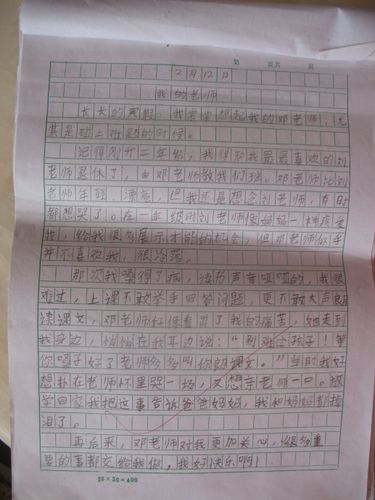 第 页 共 页
2月12日
我的老师
长长的寒假，我常常想起我的邓老师，尤
其是碰上难题的时候。
记得刚升二年级，我得知我最最喜欢的刘
老师退休了，由邓老师教我们班。邓老师比刘
老师年轻、漂亮，但我还是想念刘老师，有时
都想哭了。在一年级时刘老师像妈妈一样疼爱
我，给我很多展示才能的机会，但邓老师似乎
并不喜欢我，很冷落。
那次我嗓得了病，读书声音哑哑的，我很
难过，上课不敢举手回答问题，更不敢大声朗
读课文，邓老师好像看出了我的痛苦，她走到
我身边，悄悄在我耳边说：“别难过孩子！等
你嗓子好了老师多多叫你朗读课文。”当时我好
想扑在老师怀里哭一场，又想亲老师一口。放
学回家我把这事告诉爸爸妈妈，我和妈妈都掉
泪了。
再后来，邓老师对我更加关心，很多重
要的事都交给我做，我好快乐啊！
20×20=400